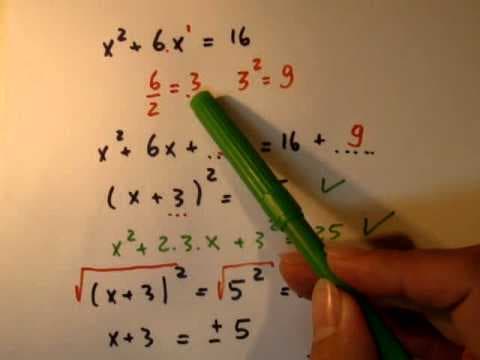 x² + 6.x¹ = 16
6/2 = 3 3² = 9
x² + 6x + .. = 16 + 9
(x + 3)² = ✓
x² + 2.3.x + 3² = 25 ✓
√(x + 3)² = √5² =
x + 3 = ± 5